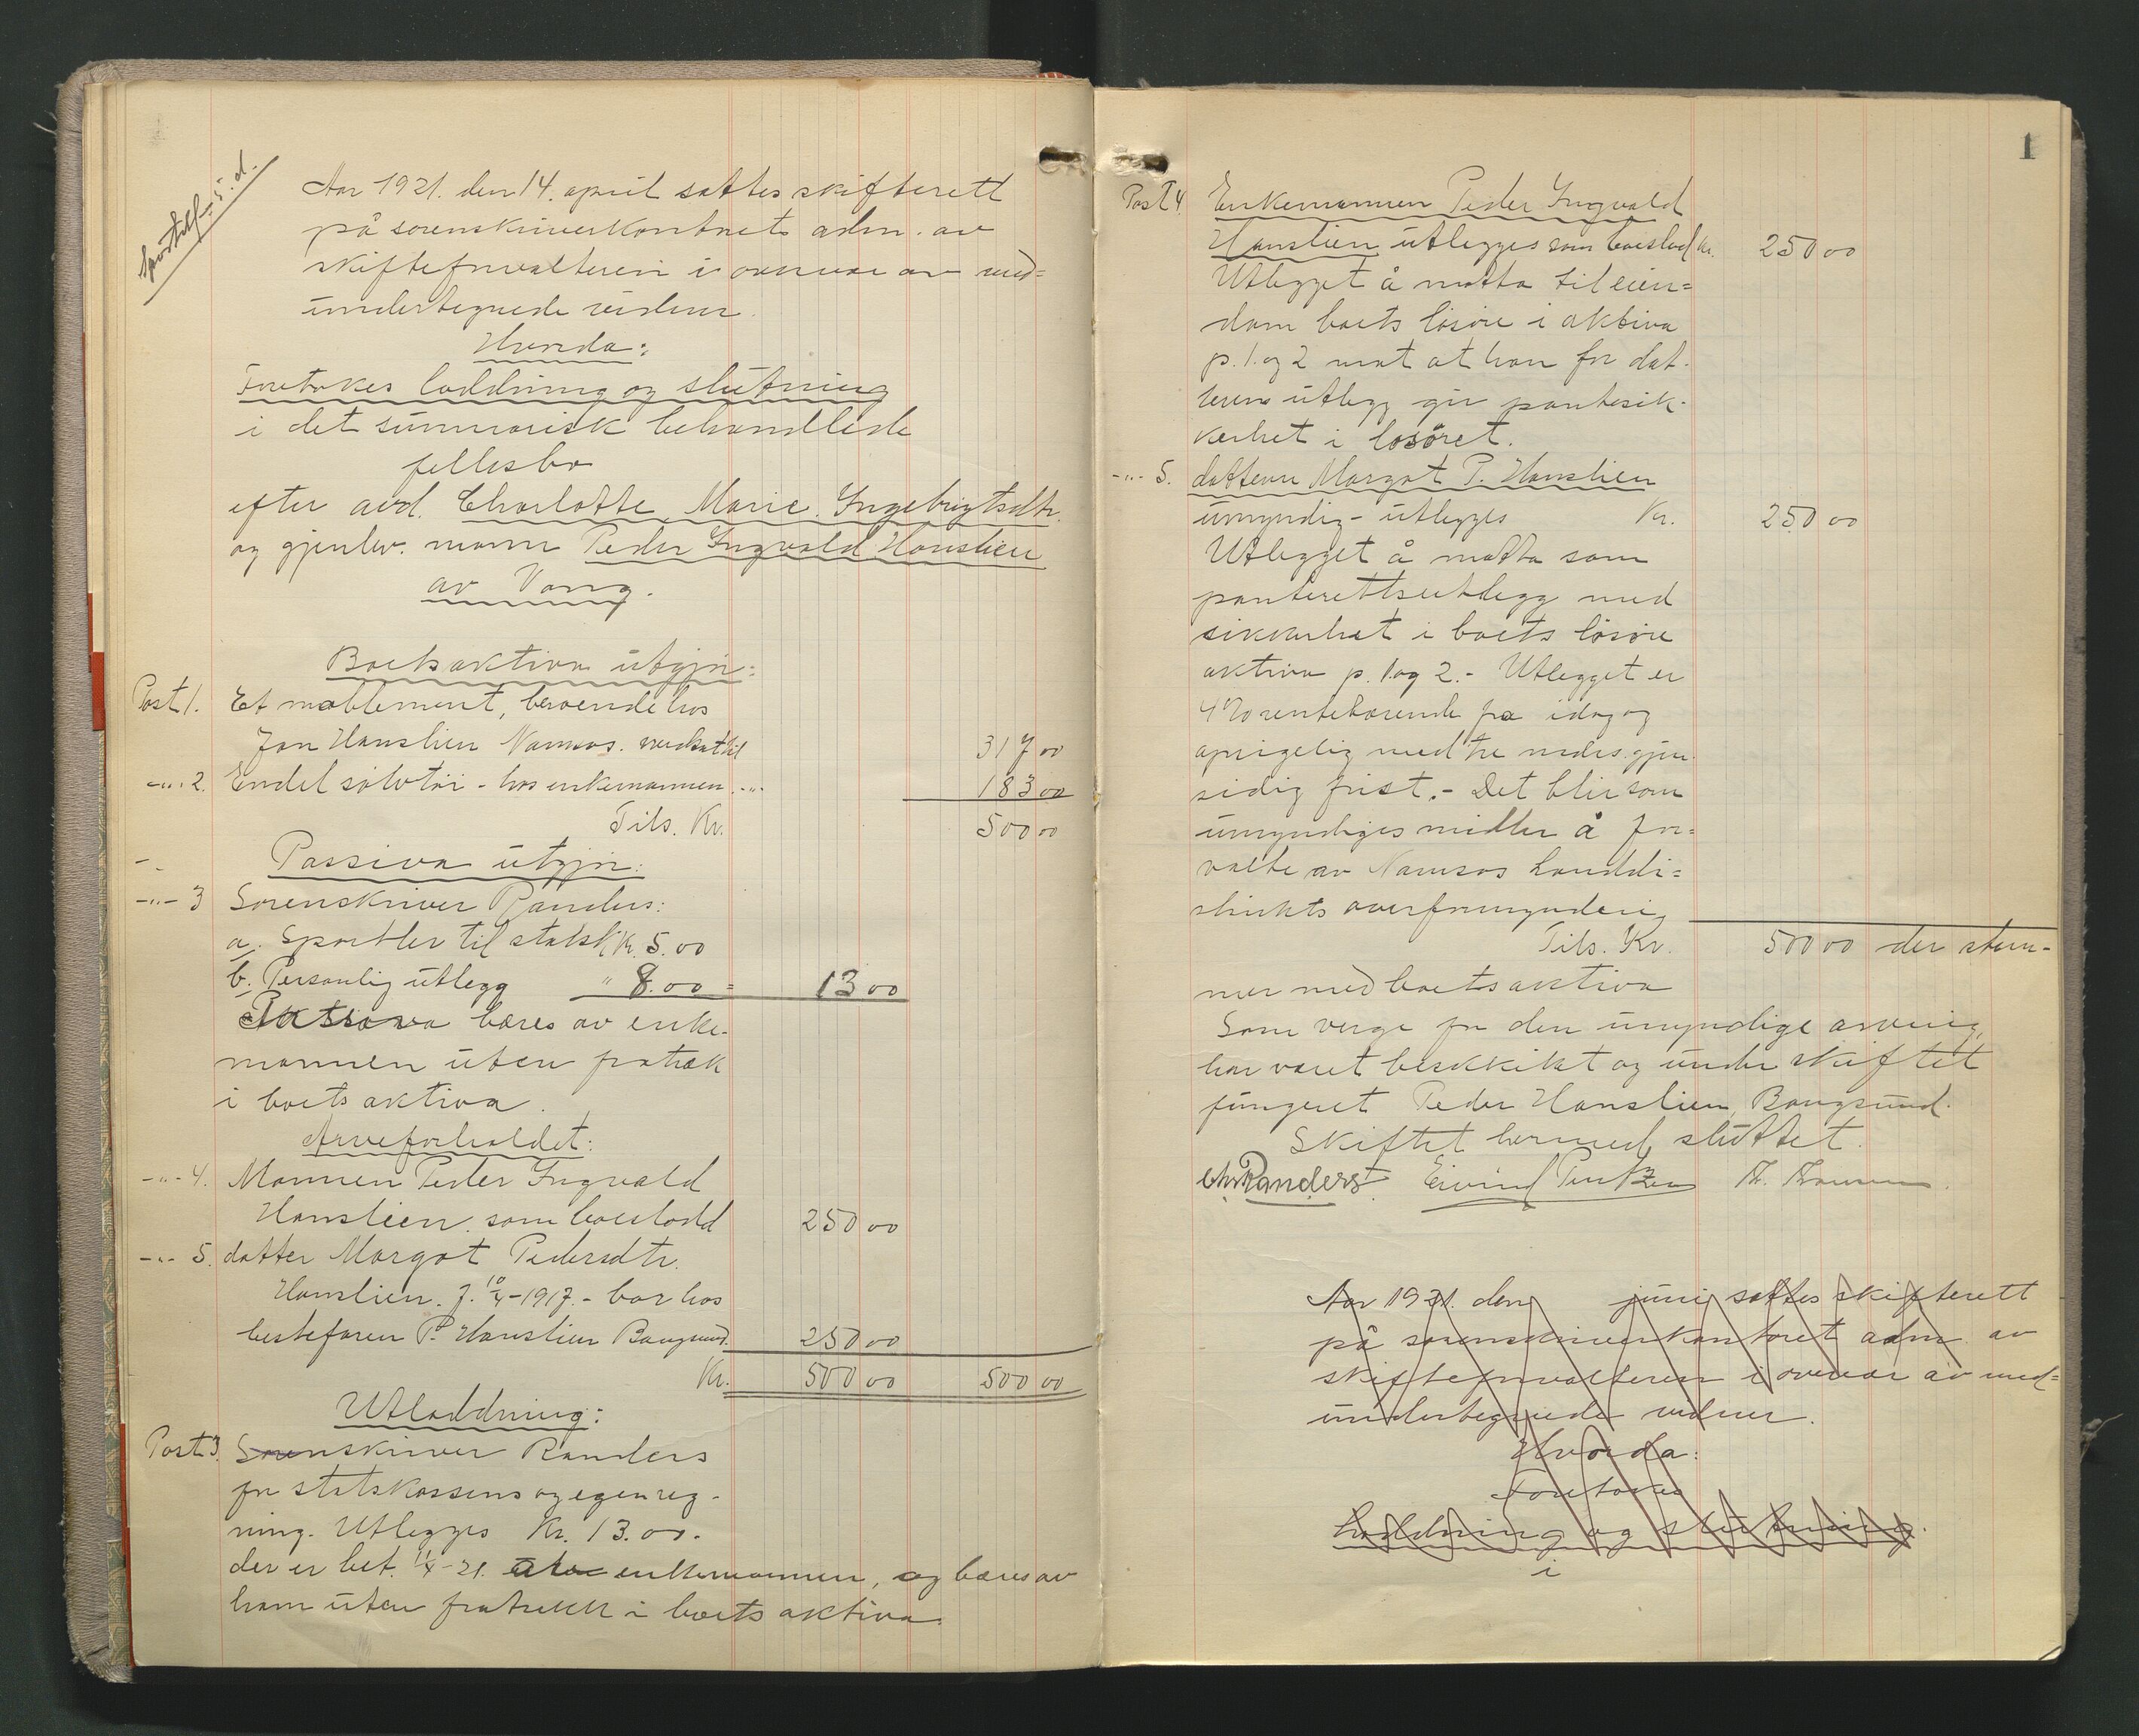 Aar 1921. den 14. april sattes skifterett
på sorenskriverkontoret adm. av
skifteforvalteren i overvær av med=
undertegnede vidner.
Hvorda:
Foretokes loddning og slutning
i det summarisk behandlede
fellesbo
efter avd. Charlotte Marie Ingebrigtsdtr.
og gjenlev. mann Peder Ingvald Hanslien
av Vang.
Boets aktiva utgjør:
Post 1. Et møblement, beroende hos
Jon Hanslien Namsos. verdsat til 317 00
-"- 2. Endel sølvtøi - hos enkemannen -"- 183 00
Tils. Kr. 500 00
Passiva utgjør:
-"- 3 Sorenskriver Randers:
a. Sportler til statsk. Kr. 5.00
b. Personlig utlegg " 8.00 = 13 00
Passiva bæres av enke-
mannen uten fratræk
i boets aktiva.
Arveforholdet:
-"- 4. Mannen Peder Ingvald
Hanslien som boeslodd 250 00
-"- 5. datter Margot Pedersdtr.
Hanslien. f. 10/4-1917. - bor hos
bestefaren P. Hanslien Bangsund. 250 00
Kr. 500 00 500 00
Utloddning:
Post 3. Sorenskriver Randers
for statskassens og egen reg-
ning. Utlegges Kr. 13.00.
der er bet. 14/4-21. av enkemannen, og bæres av
ham uten fratrekk i boets aktiva.
1
Post 4. Enkemannen Peder Ingvald
Hanslien utlegges som boeslod Kr. 250 00
Utlegget å motta til eien=
dom boets løsøre i aktiva
p. 1. og 2 mot at han for dat-
terens utlegg gir pantesik-
kerhet i løsøret.
-"- 5. datteren Margot P. Hanslien
umyndig - utlegges Kr. 250 00
Utlegget å motta som
panterettsutlegg med
sikkerhet i boets løsøre
aktiva p. 1 og 2. - Utlegget er
4% rentebærende fra idag og
opsigelig med tre mdrs. gjen-
sidig frist. - Det blir som
umyndiges midler å for=
valte av Namsos landdi=
strikts overformynderi,
Tils. Kr. 500 00 der stem-
mer med boets aktiva
Som verge for den umyndige arving
har været beskikket og under skiftet
fungeret Peder Hanslien, Bangsund.
Skiftet hermed sluttet.
Chr Randers. Eivind Pentzen
Aar 1921. den juni sattes skifterett
på sorenskriverkontoret adm. av
skifteforvalteren i overvær av med=
undertegnede vidner.
Hvorda:
Foretokes
Loddning og slutning.
i